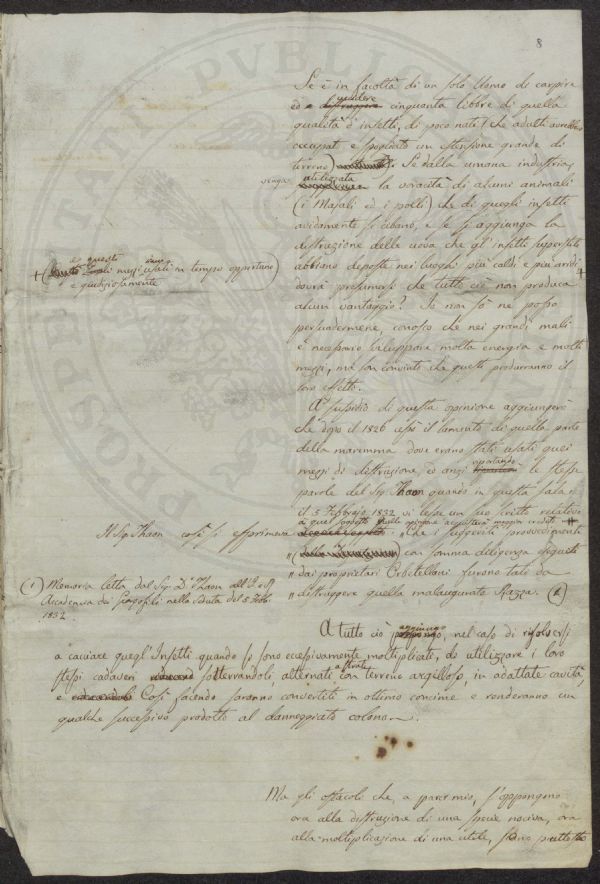 8
Se è in facoltà di un solo Uomo di carpire
ed uccidere cinquanta libbre di quella
qualità d'insetti, di poco nati (che adulti avrebbero
occupat e spogliato un estensione grande di
terreno) Se dalla umana industria,
venga utilizzata la voracità di alcuni animali
(i Majali ed i polli) che di quegli insetti
avidamente si cibano, e se si aggiunga la
distruzione delle uova che gl'insetti superstiti
abbiano deposte nei luoghi più caldi e più aridi +
+ (e questi mezzi usati in tempo opportuno)
e giudiziosamente
dovrà presumersi che tutto ciò non produca
alcun vantaggio? Io non sò nè posso
persuadermene, conosco che nei grandi mali
è necessario sviluppare molta energia e molti
mezzi, ma son convinto che questi produrranno il
loro effetto.
A sussidio di questa opinione aggiungerò
che dopo il 1826 cessò il lamento di quella parte
della maremma dove erano stati usati quei
mezzi di distruzione, ed anzi riportando le stesse
parole del Sig. Thaon quando in questa sala
il 5 Febbrajo 1832 vi lesse un suo scritto relativo
a quel soggetto quella opinione acquisterà maggior credito #
Il Sig. Thaon così si esprimeva "Che i suggeriti provvedimenti
" con somma diligenza eseguiti
" dai proprietarj Orbetellani furono tali da
" distruggere quella malaugurata Razza. (1)
(1) Memoria letta dal Sig. D. Thaon all'I. e R.
Accademia dei Georgofili nella seduta del 5 Febb.
1832
A tutto ciò aggiungo, nel caso di risolversi
a cacciare quegl'Insetti quando si sono eccessivamente moltiplicati, di utilizzare i loro
stessi cadaveri sotterrandoli, alternati a strati con terreno argilloso, in adattate cavità,
e Così facendo saranno convertiti in ottimo concime e renderanno un
qualche successivo prodotto al danneggiato colono.
Ma gli ostacoli che, a parer mio, s'oppongono
ora alla distruzione di una specie nociva, ora
alla moltiplicazione di una utile, sono piuttosto